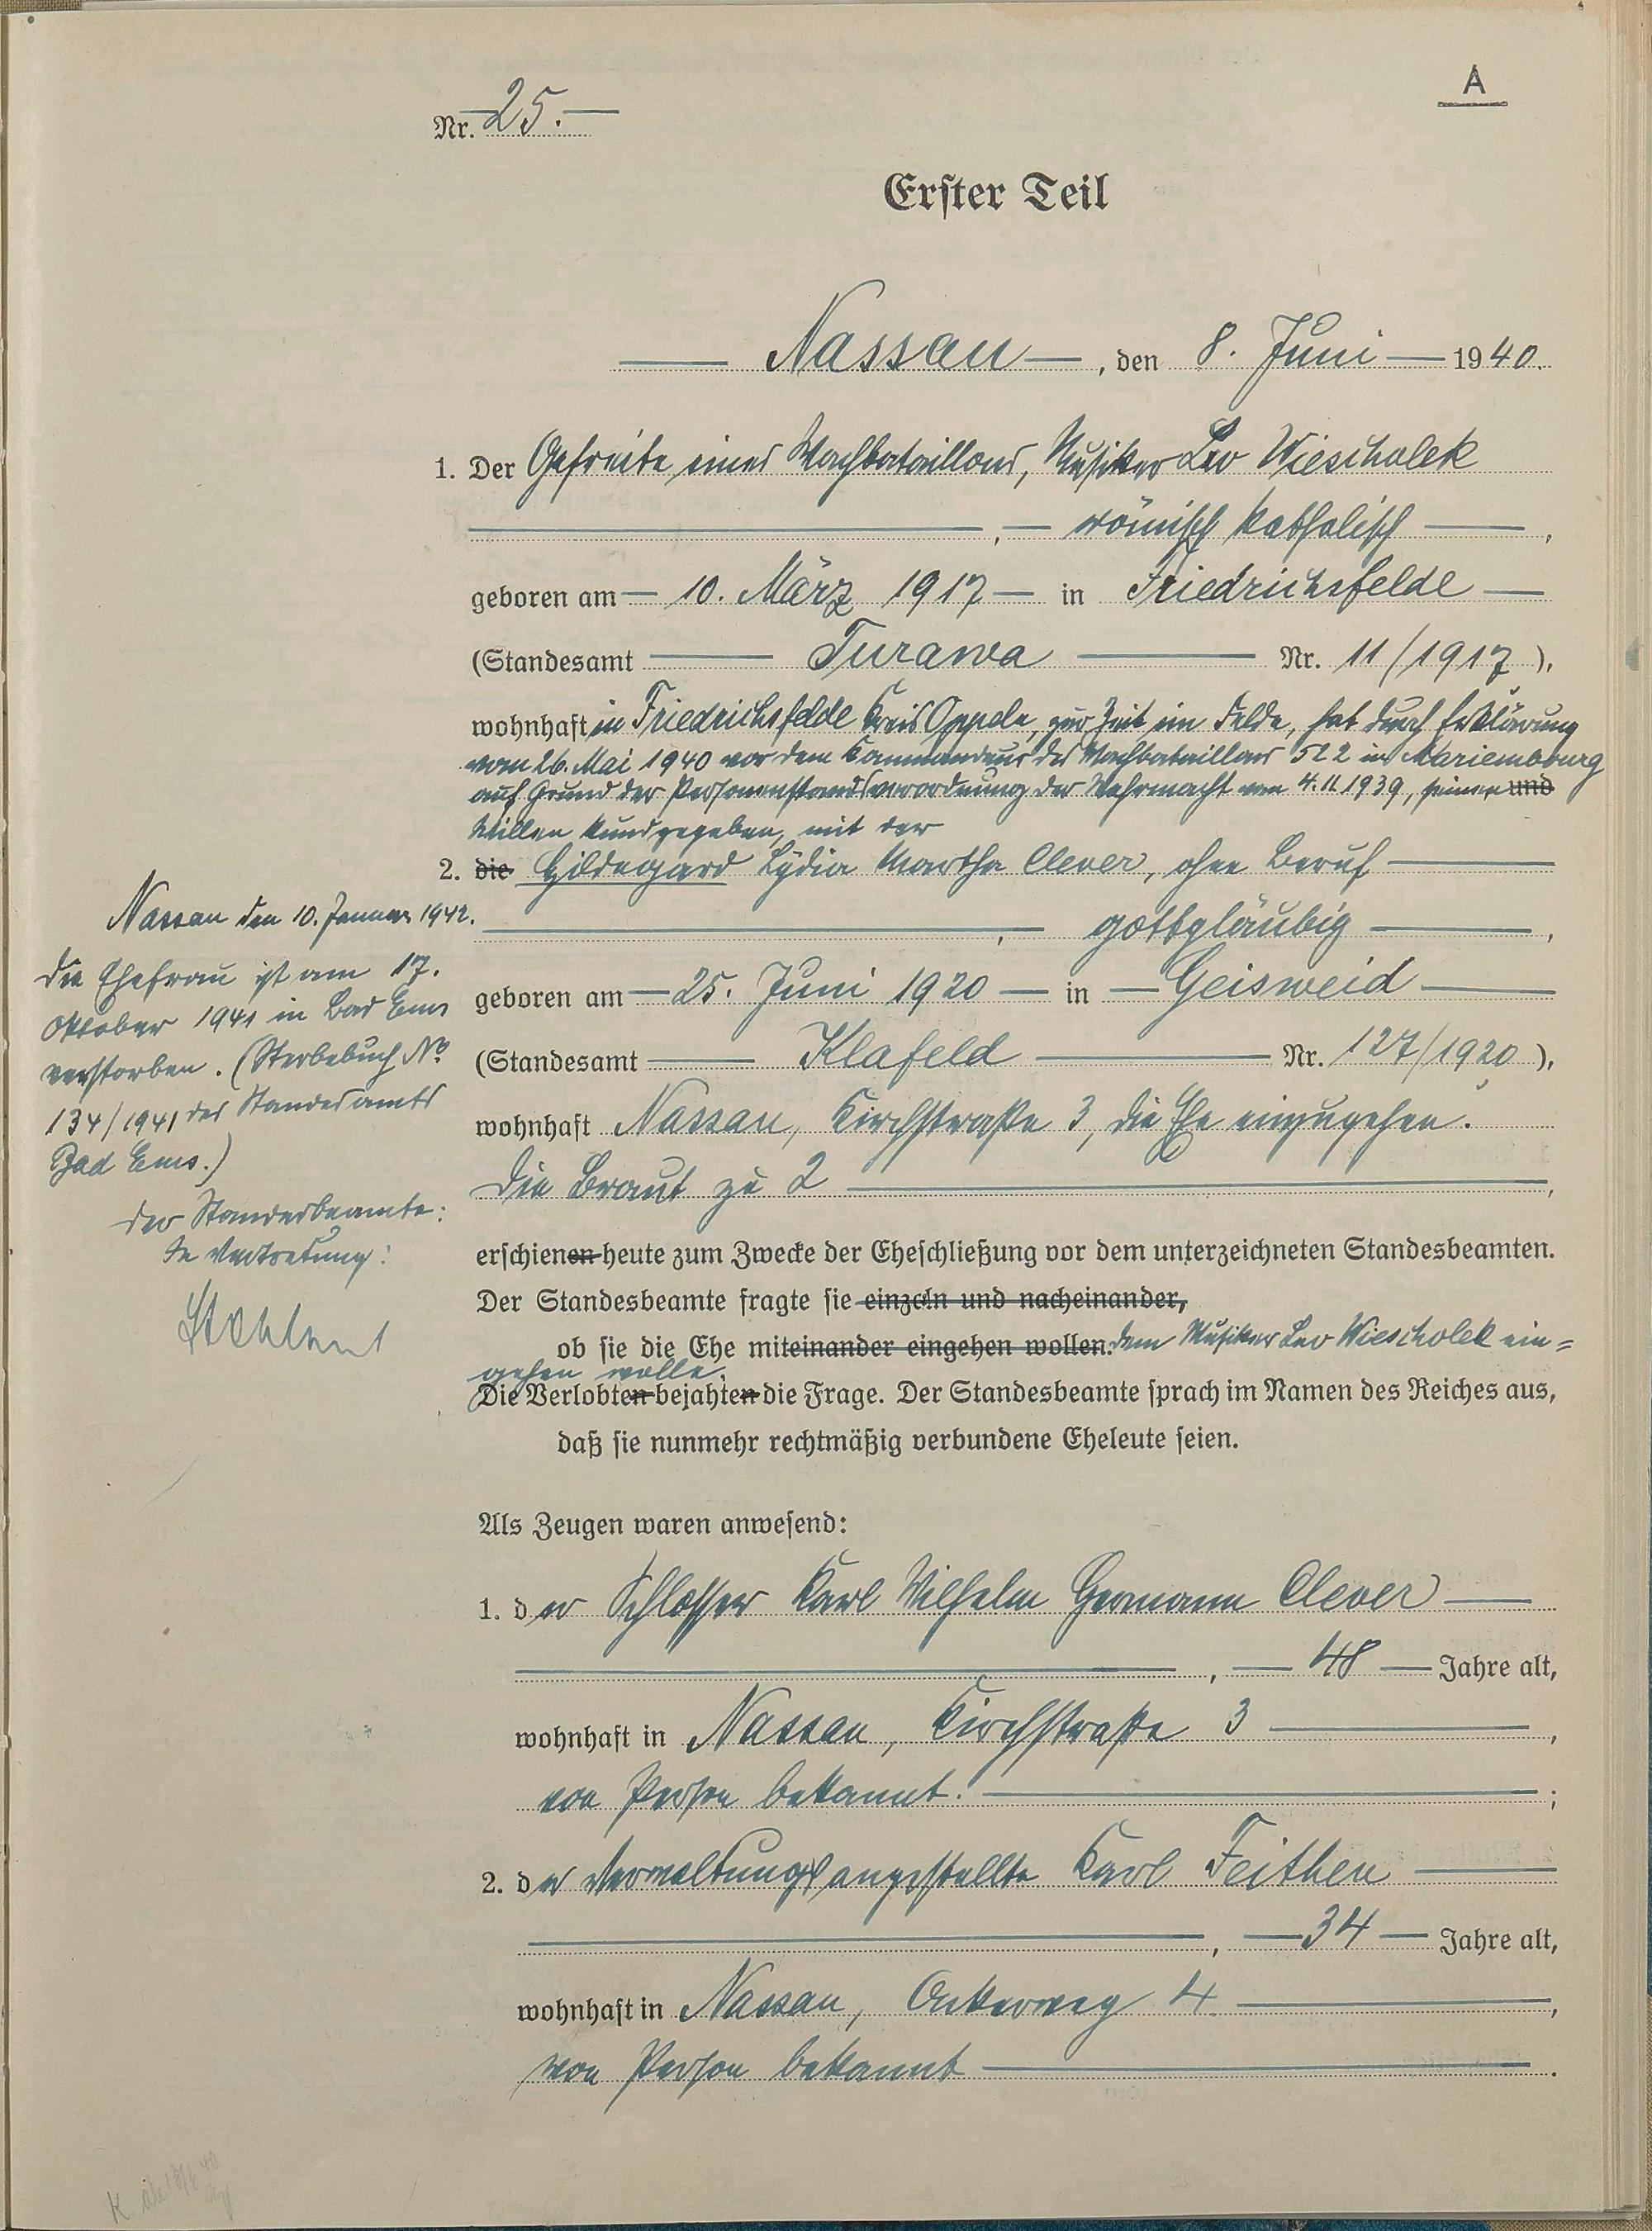 A
Nr. 25.
Erster Teil
Nassau, den 8. Juni 1940.
1. Der Gefreite eines Wachbataillons, Musiker Leo Wiescholek
, römisch katholisch,
geboren am 10. März 1917 in Friedrichsfelde
(Standesamt Turawa Nr. 11/1917),
wohnhaft in Friedrichsfelde Kreis Oppeln, zur Zeit im Felde, hat durch Erklärung
vom 26. Mai 1940 vor dem Kommandeur des Wachbataillons 522 in Mariembourg
auf Grund der Personenstandsverordnung der Wehrmacht vom 4.11.1939, seinen und
Willen kundgegeben, mit der
2. die Hildegard Lydia Martha Clever, ohne Beruf
, gottgläubig,
geboren am 25. Juni 1920 in Geisweid
(Standesamt Klafeld Nr. 127/1920),
wohnhaft Nassau, Kirchstraße 3, die Ehe einzugehen.
Die Braut zu 2,
erschienen heute zum Zwecke der Eheschließung vor dem unterzeichneten Standesbeamten.
Der Standesbeamte fragte sie einzeln und nacheinander,
ob sie die Ehe miteinander eingehen wollen. dem Musiker Leo Wiescholek ein=
gehen wolle.
Die Verlobten bejahten die Frage. Der Standesbeamte sprach im Namen des Reiches aus,
daß sie nunmehr rechtmäßig verbundene Eheleute seien.
Als Zeugen waren anwesend:
1. der Schlosser Karl Wilhelm Hermann Clever
, 48 Jahre alt,
wohnhaft in Nassau, Kirchstraße 3,
von Person bekannt.;
2. der Verwaltungsangestellte Karl Feithen
, 34 Jahre alt,
wohnhaft in Nassau, 4,
von Person bekannt.
Nassau den 10. Januar 1942.
Die Ehefrau ist am 17.
Oktober 1941 in Bad Ems
verstorben. (Sterbebuch No
134/1941 des Standesamts
Bad Ems.)
Der Standesbeamte:
In Vertretung: